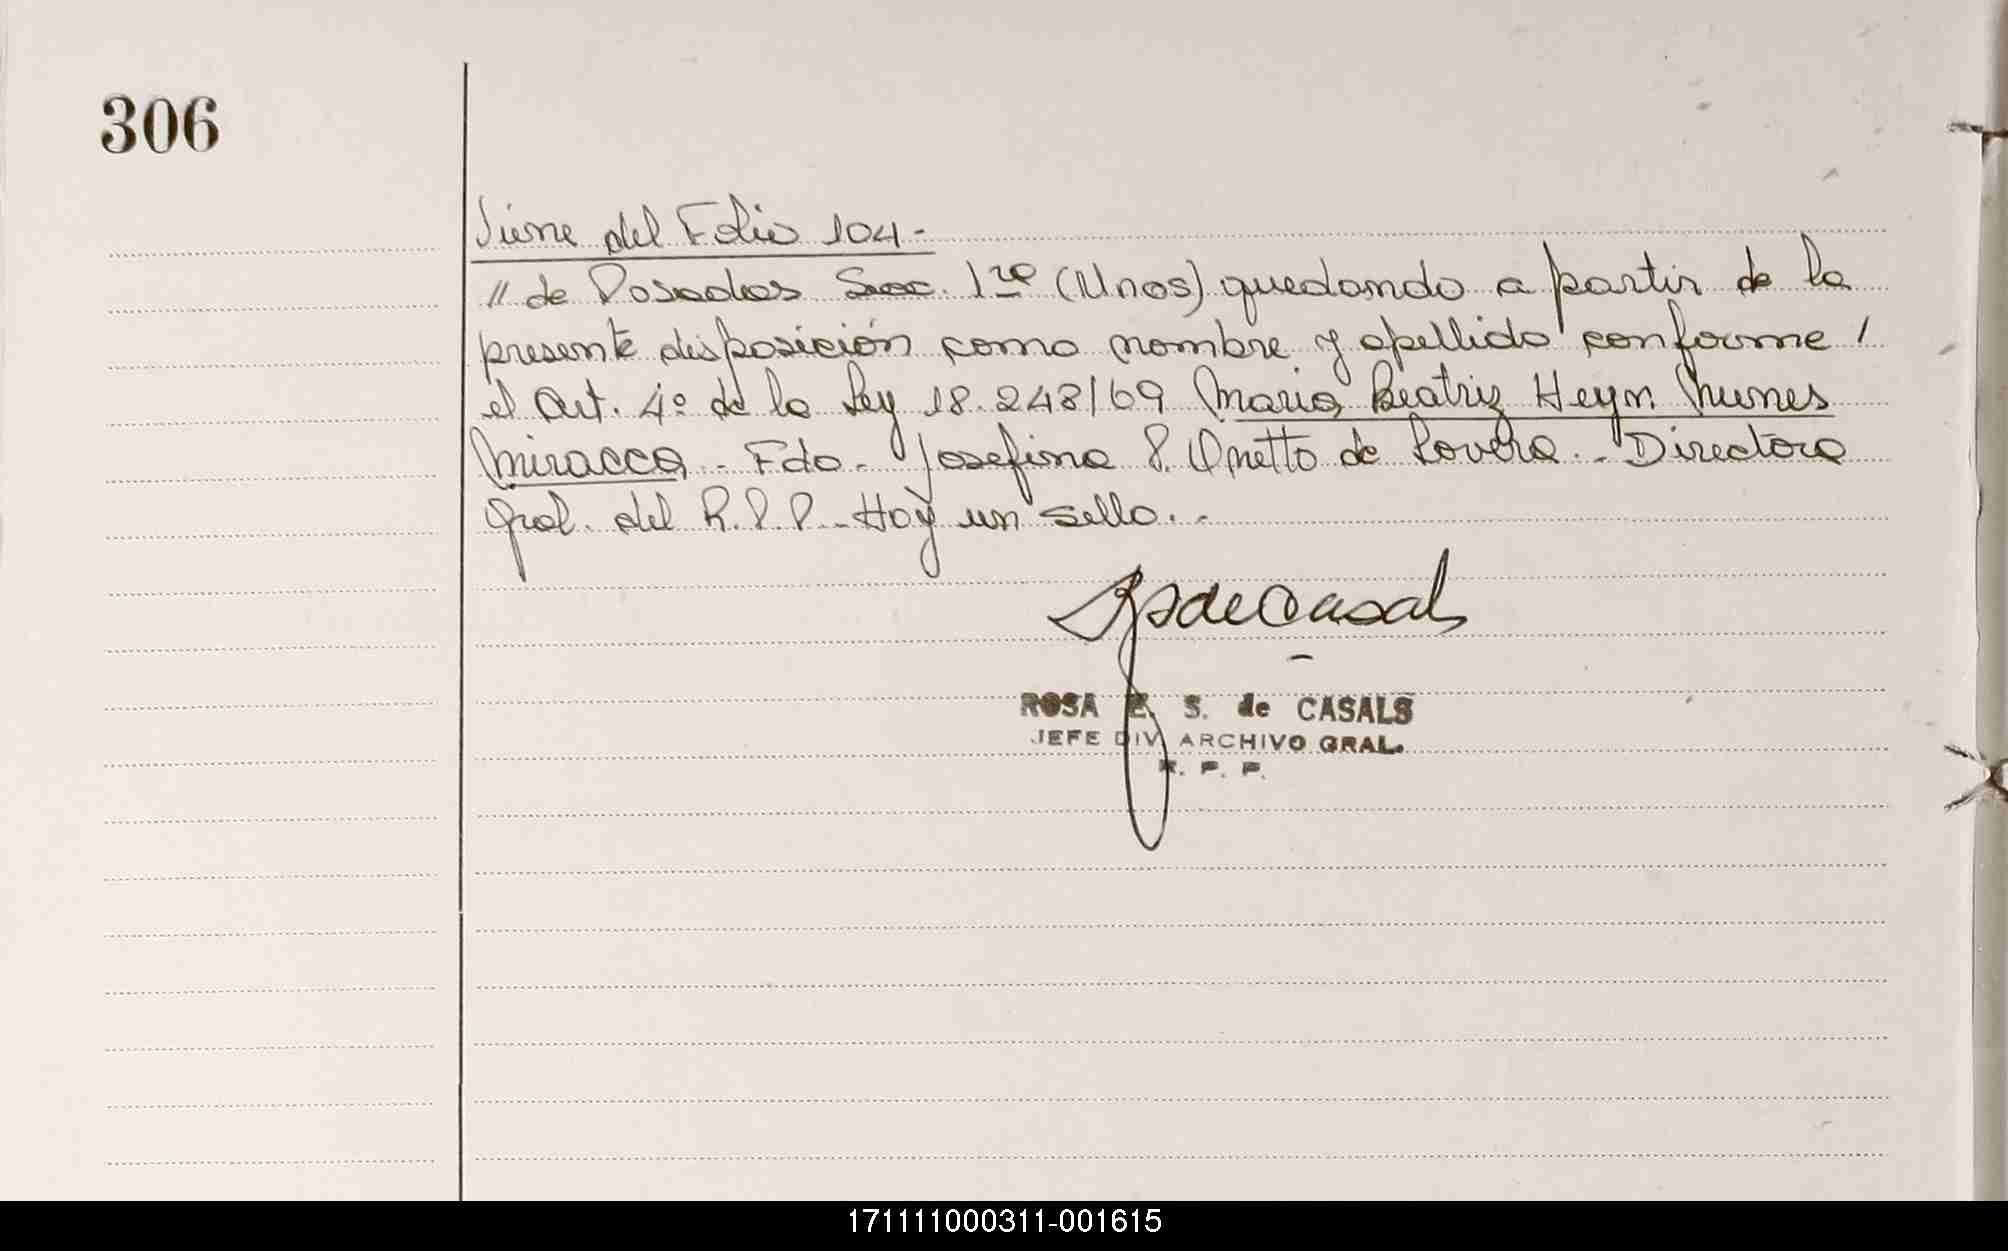 306
Viene del Folio 104.-
// de Posadas Secc. 1ra (Unos) quedando a partir de la
presente disposición como nombre y apellido conforme /
el Art. 4º de la Ley 18.248/69 Maria Beatriz Heyn Nunes
Miracca.- Fdo.- Josefina P. Onetto de Lovera.- Directora
Gral. del R.P.P.- Hay un sello.-
ROSA E. S. de CASALS
JEFE DIV ARCHIVO GRAL.
R. P. P.
171111000311-001615